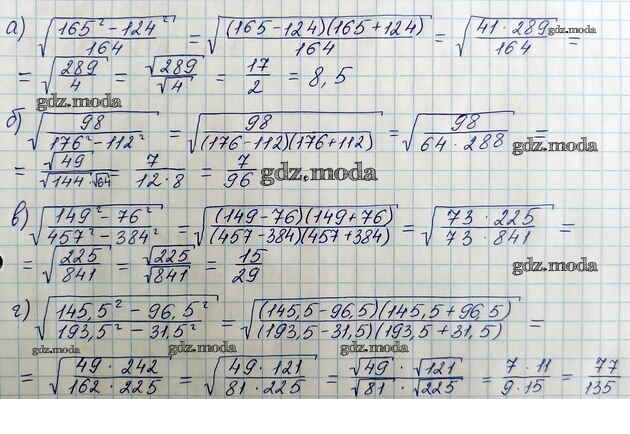 а) √((165² - 124²)/164) = √((165-124)(165+124)/164) = √((41 · 289)/164) =
gdz.moda
= √(289/4) = √289/√4 = 17/2 = 8,5
gdz.moda
б) √(98/(176² - 112²)) = √(98/((176-112)(176+112))) = √(98/(64 · 288)) =
gdz.moda
= √49/(√144 · √64) = 7/(12·8) = 7/96 gdz.moda
в) √((149² - 76²)/(457² - 384²)) = √((149-76)(149+76)/((457-384)(457+384))) = √((73 · 225)/(73 · 841)) =
= √(225/841) = √225/√841 = 15/29
gdz.moda
г) √((145,5² - 96,5²)/(193,5² - 31,5²)) = √((145,5-96,5)(145,5+96,5)/((193,5-31,5)(193,5+31,5))) =
gdz.moda gdz.moda gdz.moda
= √((49 · 242)/(162 · 225)) = √((49 · 121)/(81 · 225)) = (√49 · √121)/(√81 · √225) = (7 · 11)/(9·15) = 77/135